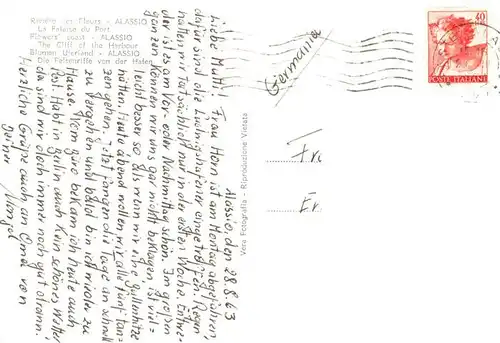 Riviera dei Fiori - ALASSIO
La Falaise du Port
Flowers' coast - ALASSIO
The Cliff of the Harbour
Blumen Uferland - ALASSIO
Die Felsenriffe von der Hafen
Alassio, den 28.8.63
Liebe Mutti! Frau Horn ist am Montag abgefahren,
dafür sind die Ludwigshafener eingetroffen. Regen
hatten wir tatsächlich nur in der ersten Woche. Entwe-
der ist es am Vor- oder Nachmittag schön. Im großen
ganzen können wir uns gar nicht beklagen, ist viel-
leicht besser so als wenn wir eine Gluthitze
hätten. Heute abend wollen wir alle fünf tan-
zen gehen. Jetzt fangen die Tage an schnell
zu vergehen und bald bin ich wieder zu
Hause. Vom Büro bekam ich heute auch
Post. Habt in Berlin auch kein schönes Wetter
da sind wir doch immer noch gut dran.
Herzliche Grüße auch an Oma von
Deiner
Germania
Vera Fotografia - Riproduzione Vietata
40
POSTE ITALIANE
Fr
Er